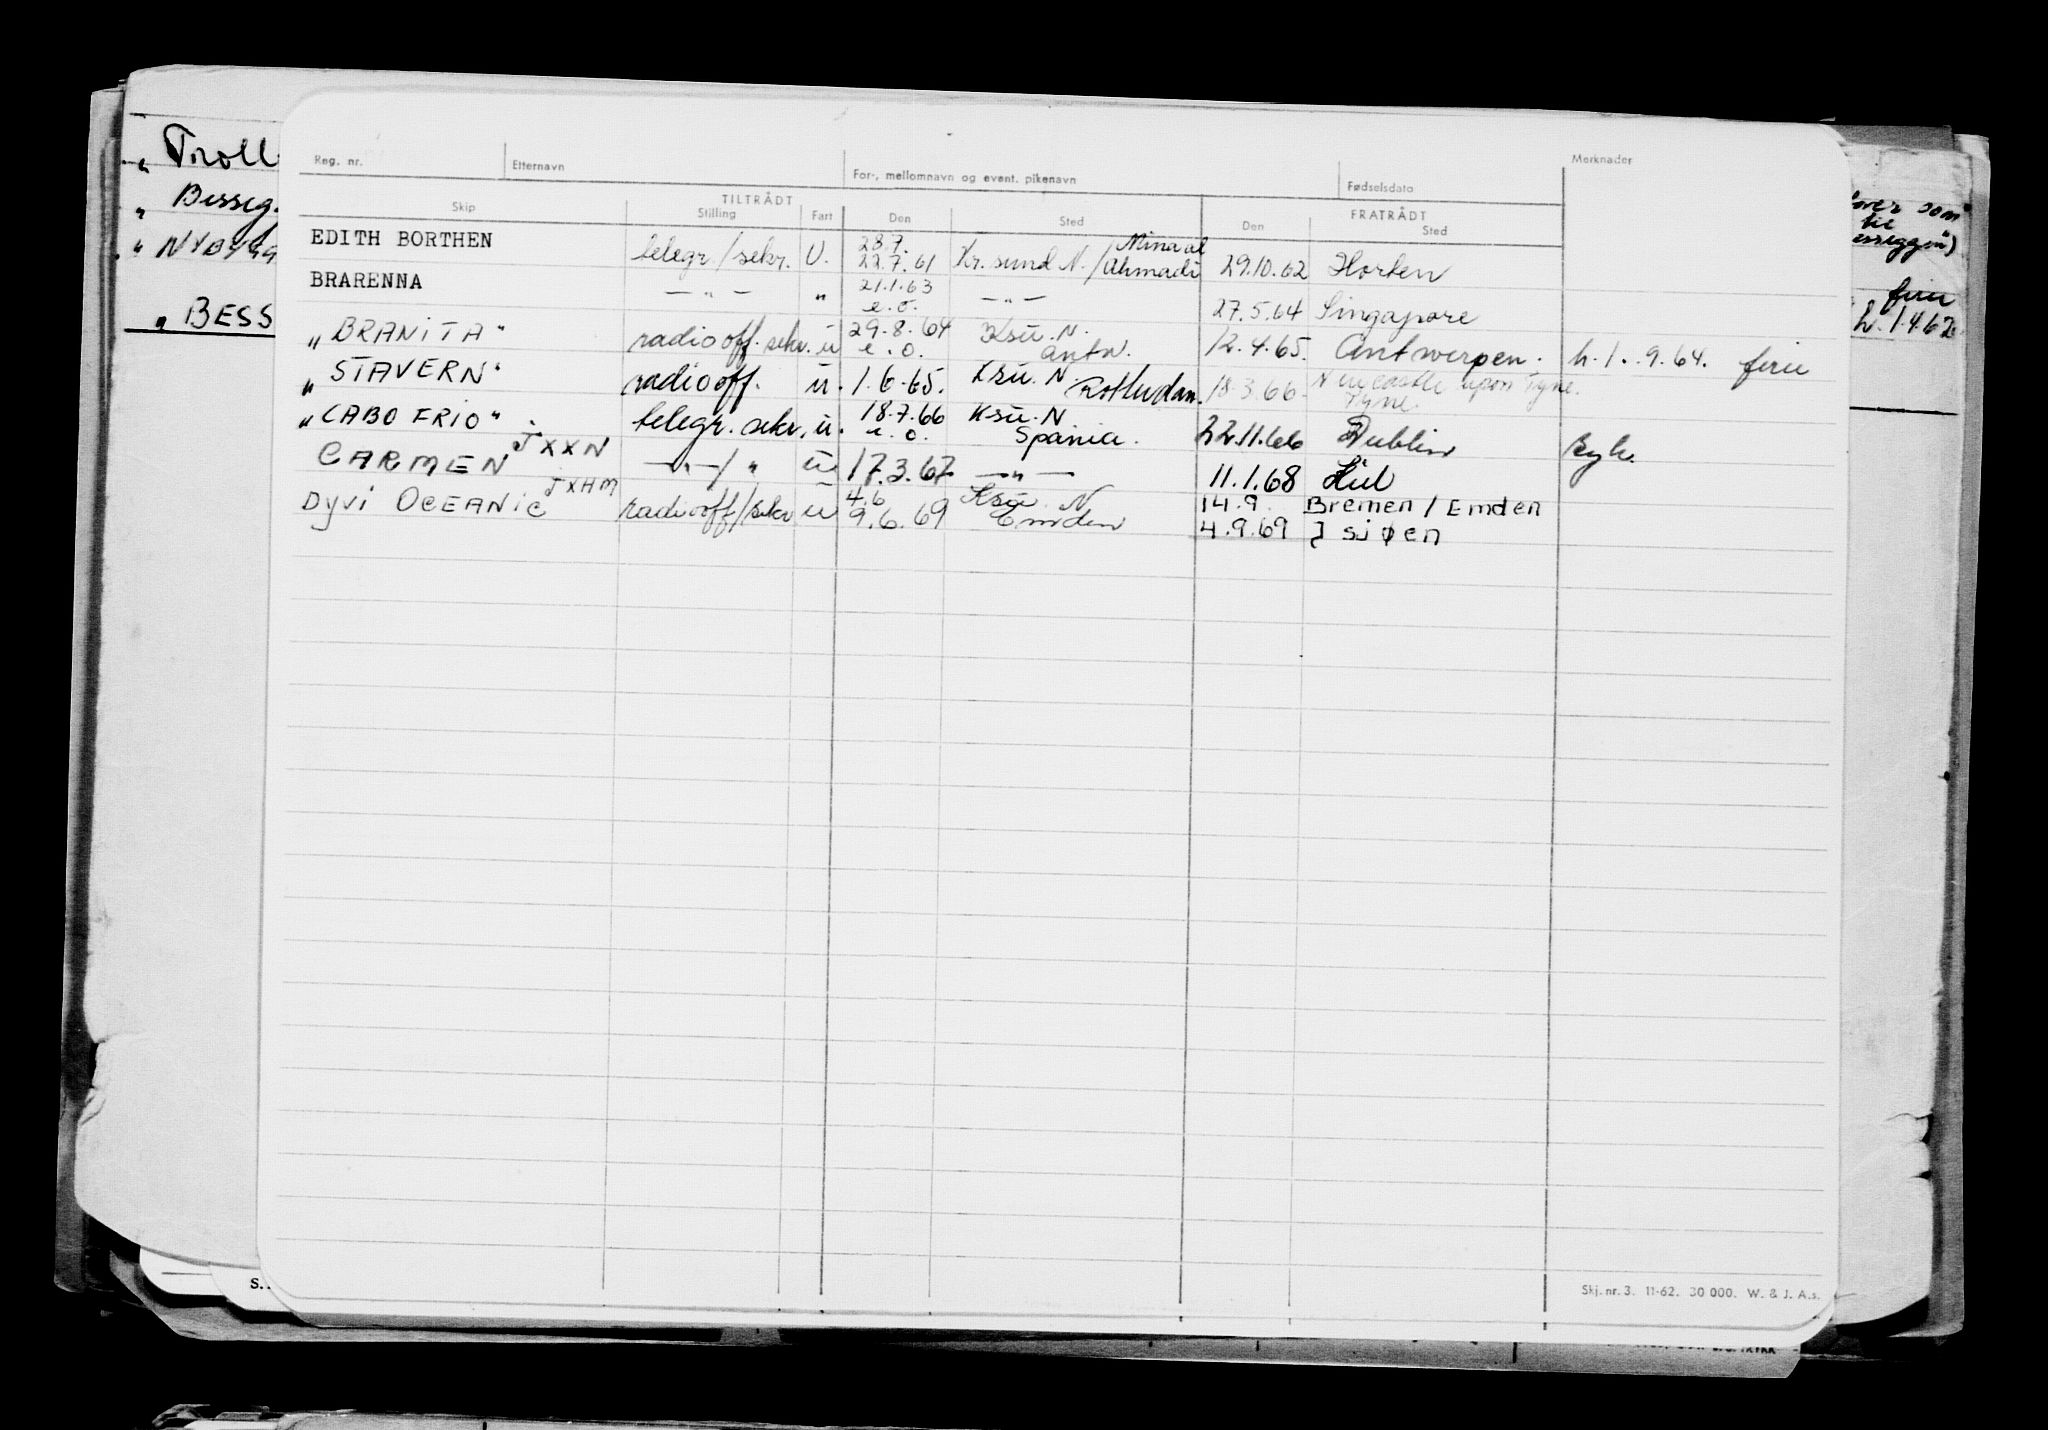 Reg. nr. Etternavn For-, mellomnavn og event. pikenavn Fødselsdato Merknader
TILTRÅDT FRATRÅDT
Skip Stilling Fart Den Sted Den Sted
EDITH BORTHEN telegr./sekr. U. 28.7. 22.7.61 Kr. sund N./Mina al Ahmadi 29.10.62 Horten
BRARENNA — " — " 21.1.63 e.o. — " — 27.5.64 Singapore
"BRANITA" radiooff. sekr. u 29.8.64 e.o. Ksu. N. Antw. 12.4.65. Antwerpen. h. 1..9.64. ferie
"STAVERN" radiooff. u. 1.6.65. Ksu. N Rotterdam. 18.3.66. Newcastle upon Tyne. Tyne.
"CABO FRIO" telegr. sekr. u. 18.7.66 e.o. Ksu. N Spania. 22.11.66 Dublin syk.
CARMEN JXXN — " —/ " u 17.3.67 — " — 11.1.68 Kiel
DYVI OCEANIC JXHM radiooff/sekr u 4.6 9.6.69 Ksu. N Emden 14.9. Bremen / Emden
4.9.69 } sjøen
" Troll
" Besseg.
" NYBYGG
" BESS
som
til
esseggen")
ferie
h. 1.4.62
Skj. nr. 3. 11-62. 30 000. W. & J. A.s.
S.